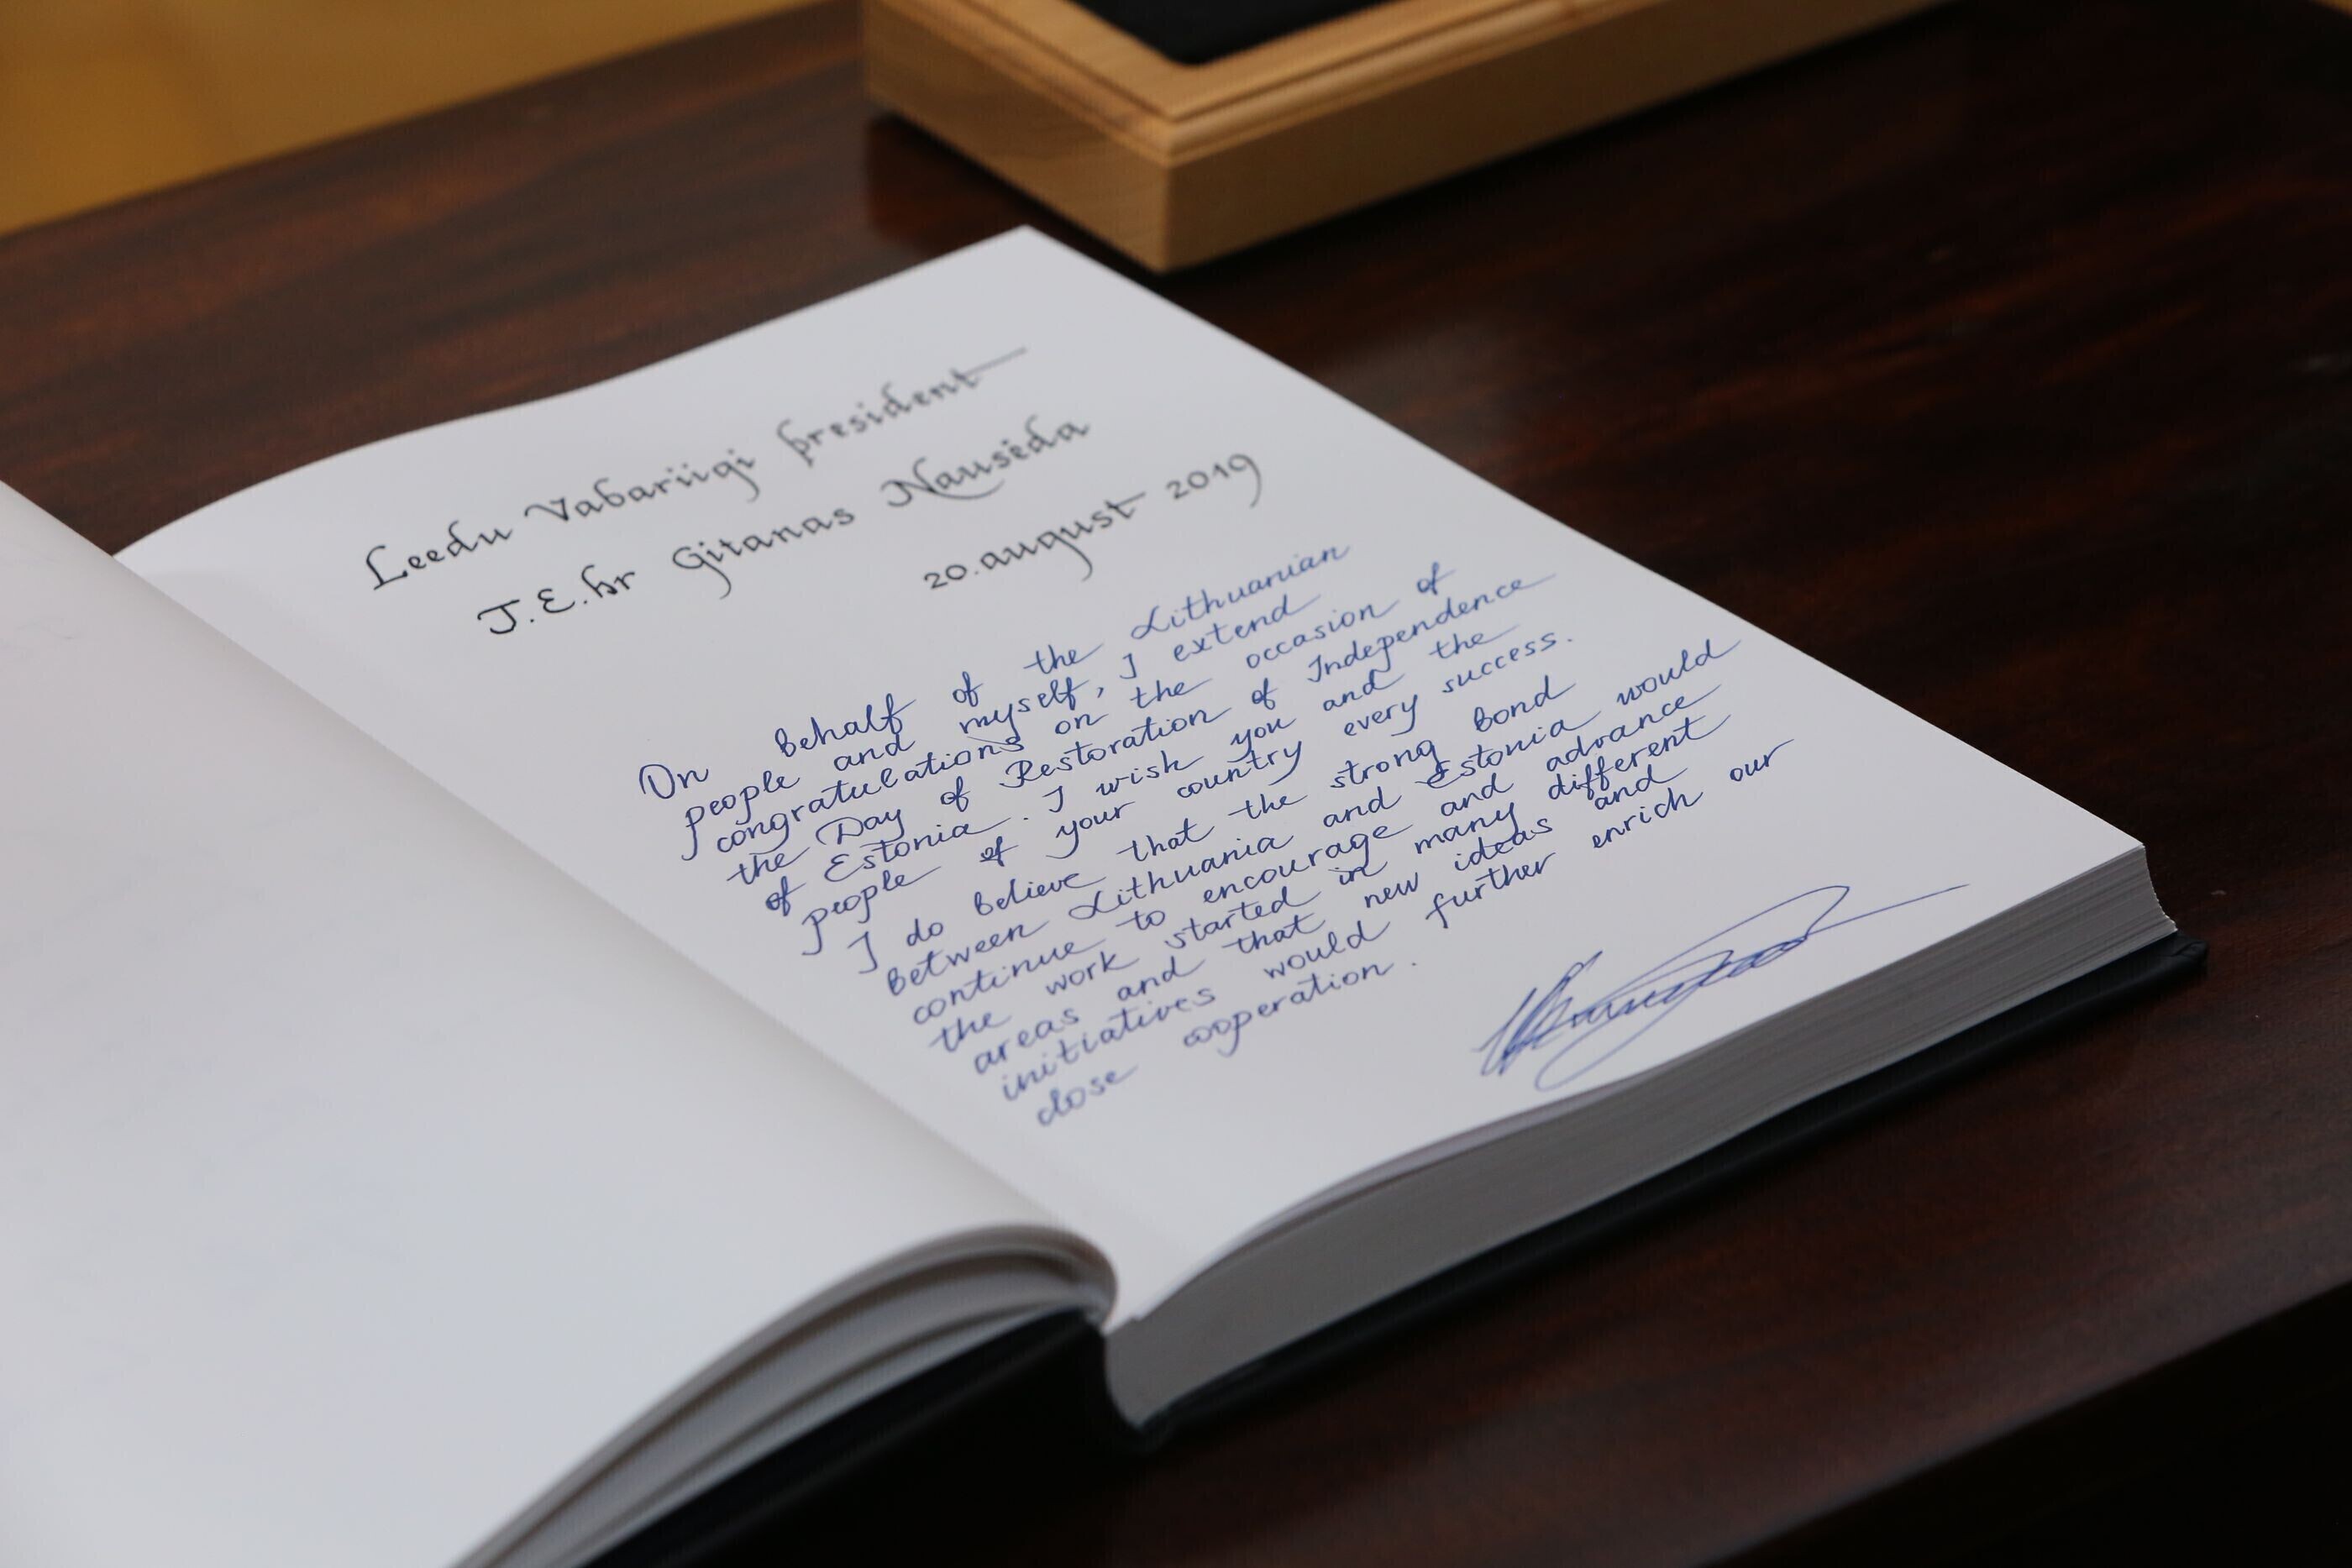 Leedu Vabariigi president
J.E.hr Gitanas Nausėda
20. august 2019
On behalf of the Lithuanian
people and myself, I extend
congratulations on the occasion of
the Day of Restoration of Independence
of Estonia. I wish you and the
people of your country every success.
I do believe that the strong bond
between Lithuania and Estonia would
continue to encourage and advance
the work started in many different
areas and that new ideas and
initiatives would further enrich our
close cooperation.